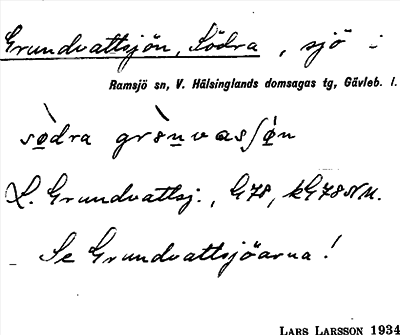 Grundvattsjön, Södra, sjö i
Ramsjö sn, V. Hälsinglands domsagas tg, Gävleb. l.
sòdra grènvasʃòn
S. Grundvattsj., G78, kG78NU.
– Se Grundvattsjöarna!
LARS LARSSON 1934